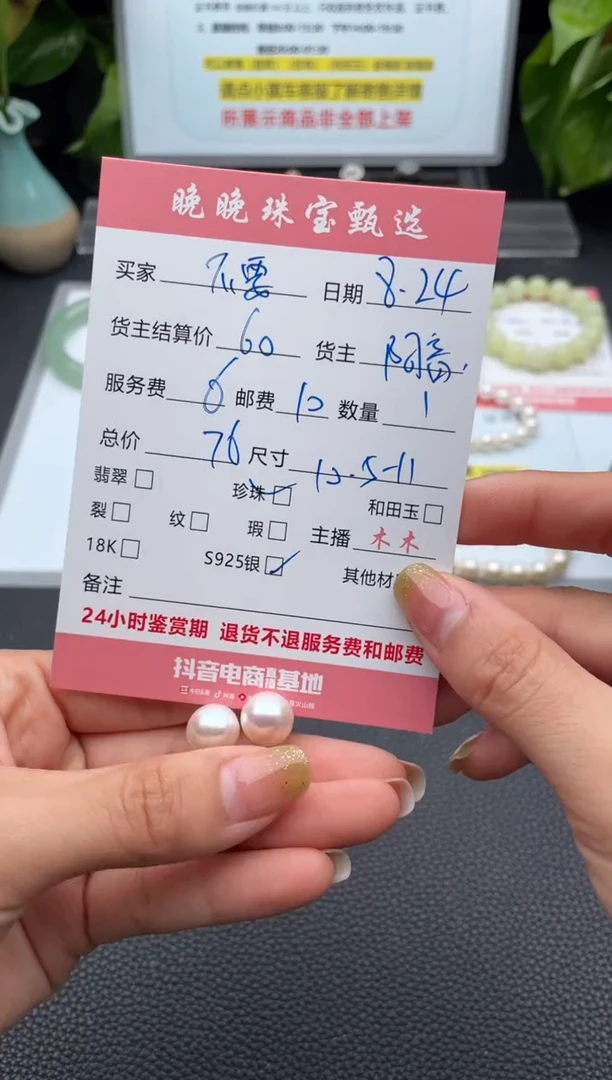 所展示商品非全部上架
晚晚珠宝甄选
买家 不要 日期 8.24
货主结算价 60 货主
服务费 6 邮费 10 数量 1
总价 76 尺寸
翡翠 珍珠 和田玉
裂 纹 瑕 主播 木木
18K S925银 其他材
备注
24小时鉴赏期 退货不退服务费和邮费
抖音电商直播基地
今日头条 抖音 火山版